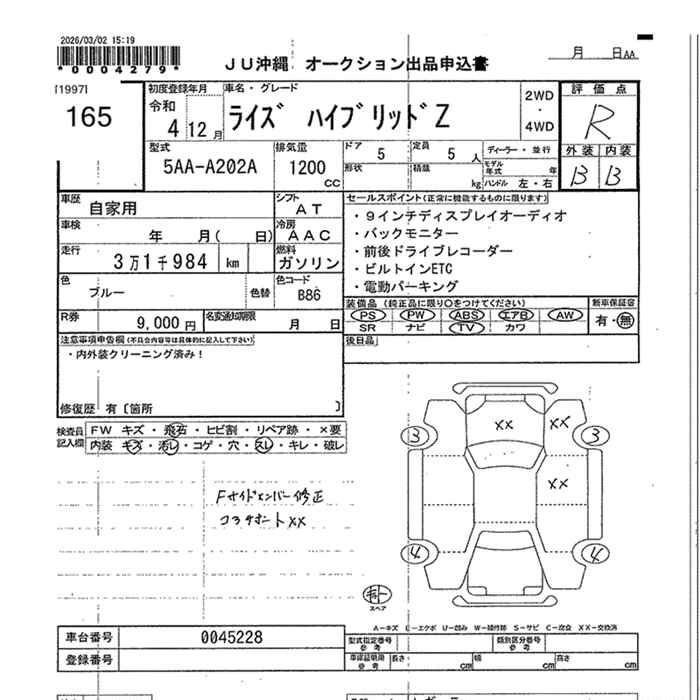 2026/03/02 15:19
*0004279*
JU沖縄 オークション出品申込書
月 日AA
[1997]
165
初度登録年月
令和
4 12月
車名・グレード
ライズ ハイブリッドZ
2WD
・
4WD
評価点
R
外装 内装
B B
型式
5AA-A202A
排気量
1200
CC
ドア 5
定員 5人
形状
積載 kg
ディーラー・並行
モデル年式 年
ハンドル 左・右
車歴
自家用
シフト
AT
車検
年 月( 日)
冷房
AAC
走行
3万1千984 km
燃料
ガソリン
色
ブルー
色替
色コード
B86
R券
9,000円
名変通知期限
月 日
セールスポイント(正常に機能するものに限ります)
・9インチディスプレイオーディオ
・バックモニター
・前後ドライブレコーダー
・ビルトインETC
・電動パーキング
装備品 (純正品に限り〇をつけてください)
PS PW ABS エアB AW
SR ナビ TV カワ
新車保証書
有・無
後日品
注意事項申告欄(不具合内容等は具体的に記入して下さい)
・内外装クリーニング済み!
修復歴 有〔箇所 〕
検査員記入欄
FW キズ・飛石・ヒビ割・リペア跡・×要
内装 キズ・汚レ・コゲ・穴・スレ・キレ・破レ
Fサイドメンバー修正
コアサポートXX
XX XX
3 3
XX
4 4
スペア
A-キズ E-エクボ U-凹み W-補修跡 S-サビ C-腐食 XX-交換済
車台番号 0045228
登録番号
型式指定番号 参考
類別区分番号 参考
車庫証明用 参考
長さ cm
幅 cm
高さ cm